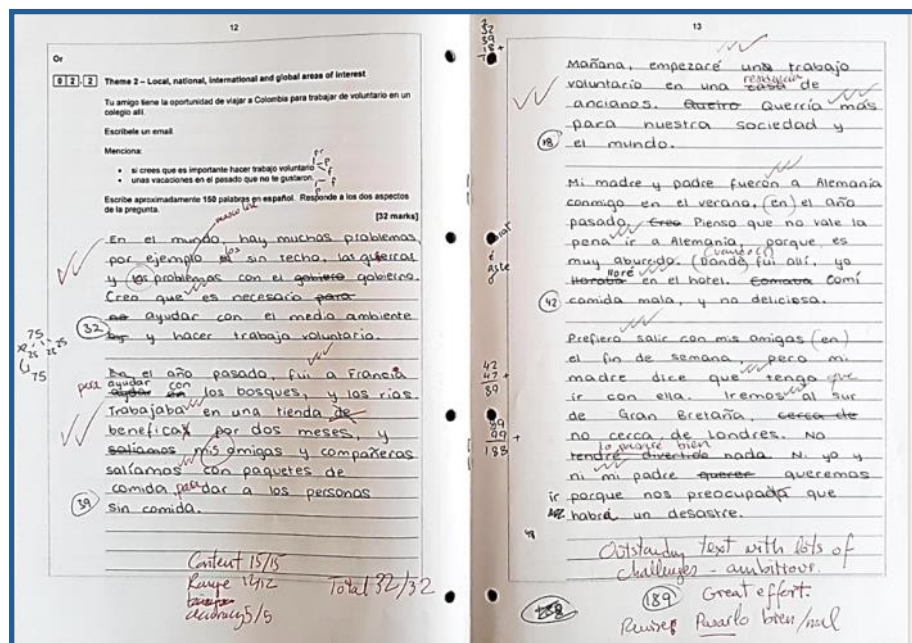 12
Or
0 2 . 2 Theme 2 – Local, national, international and global areas of interest
Tu amigo tiene la oportunidad de viajar a Colombia para trabajar de voluntario en un
colegio allí.
Escríbele un email.
Menciona:
• si crees que es importante hacer trabajo voluntario
• unas vacaciones en el pasado que no te gustaron.
Escribe aproximadamente 150 palabras en español. Responde a los dos aspectos
de la pregunta.
[32 marks]
En el mundo, hay muchos problemas,
por ejemplo los sin techo, las guerras
y los problemas con el gobierno.
Creo que es necesario
ayudar con el medio ambiente
32
y hacer trabajo voluntario.
En el año pasado, fui a Francia
para ayudar con los bosques, y los rios.
Trabajaba en una tienda de
benefica por dos meses, y
salíamos mis amigas y compañeras
salíamos con paquetes de
comida para dar a las personas
39
sin comida.
75
25 25 25
75
Content 15/15
Range 12/12
accuracy 5/5
Total 32/32
13
32
39
18 +
Mañana, empezaré un trabajo
voluntario en una casa de
ancianos. Queiro Querría más
para nuestra sociedad y
18
el mundo.
Mi madre y padre fueron a Alemania
conmigo en el verano, (en) el año
pasado. Creo Pienso que no vale la
pena ir a Alemania, porque es
muy aburrido. (Donde) fui allí, yo
lloraba lloré en el hotel. Comaba Comí
42
comida mala, y no deliciosa.
Prefiero salir con mis amigas (en)
el fin de semana, pero mi
madre dice que tengo que
ir con ella. Iremos al sur
de Gran Bretaña, cerca de
no cerca de Londres. No
lo pasaré bien
tendré divertido nada. Ni yo y
ni mi padre querer queremos
ir porque nos preocupada que
habrá un desastre.
42
47 +
89
89
99 +
188
Outstanding text with lots of
challenges - ambitious.
189
Great effort.
Revise Pasarlo bien/mal